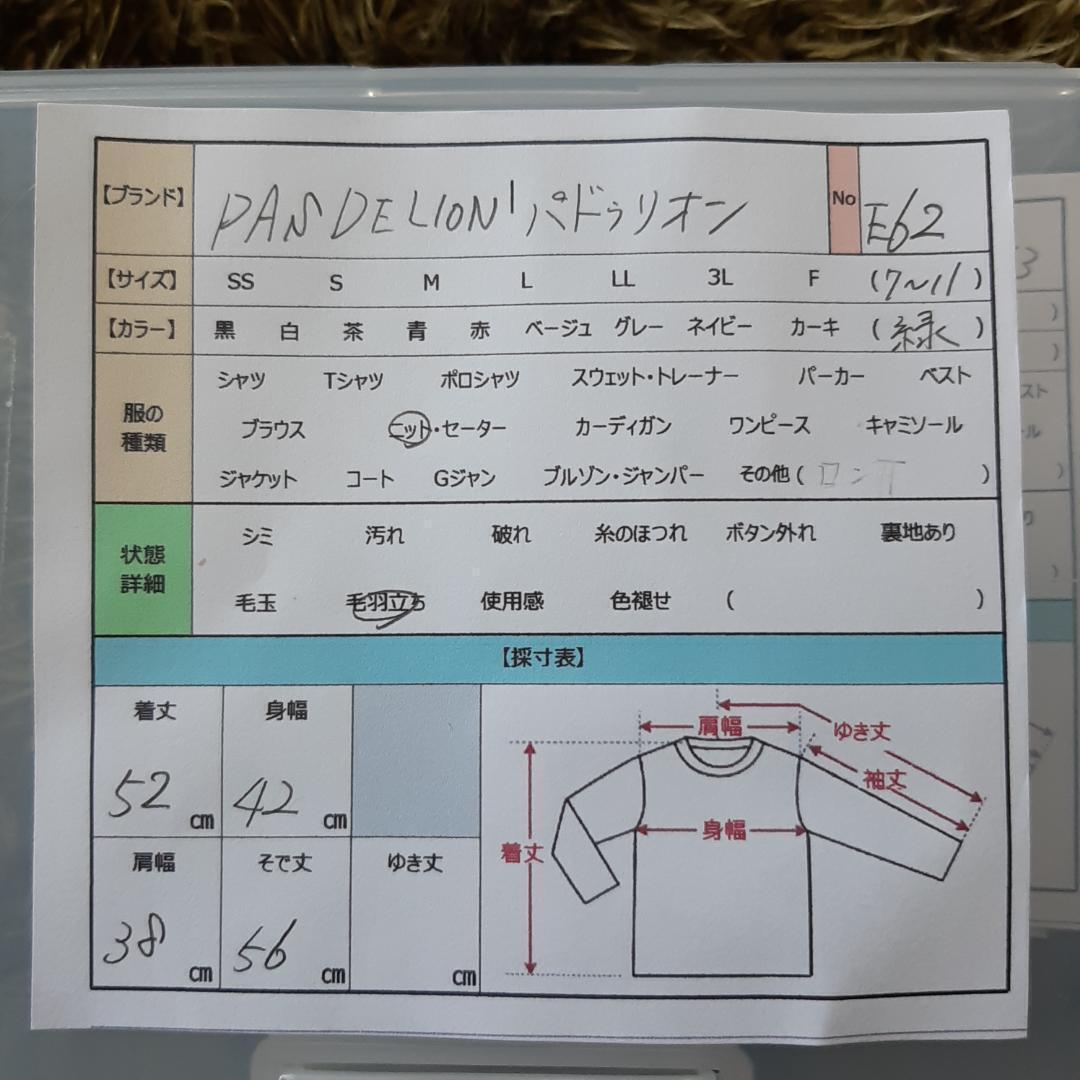 【ブランド】 PAS DE LION' パドゥリオン No E62
【サイズ】 SS S M L LL 3L F (7〜11)
【カラー】 黒 白 茶 青 赤 ベージュ グレー ネイビー カーキ (緑)
服の種類
シャツ Tシャツ ポロシャツ スウェット・トレーナー パーカー ベスト
ブラウス ニット・セーター カーディガン ワンピース キャミソール
ジャケット コート Gジャン ブルゾン・ジャンパー その他(ロンT)
状態詳細
シミ 汚れ 破れ 糸のほつれ ボタン外れ 裏地あり
毛玉 毛羽立ち 使用感 色褪せ ( )
【採寸表】
着丈 身幅
52cm 42cm
肩幅 そで丈 ゆき丈
38cm 56cm cm
肩幅 ゆき丈
袖丈
身幅
着丈